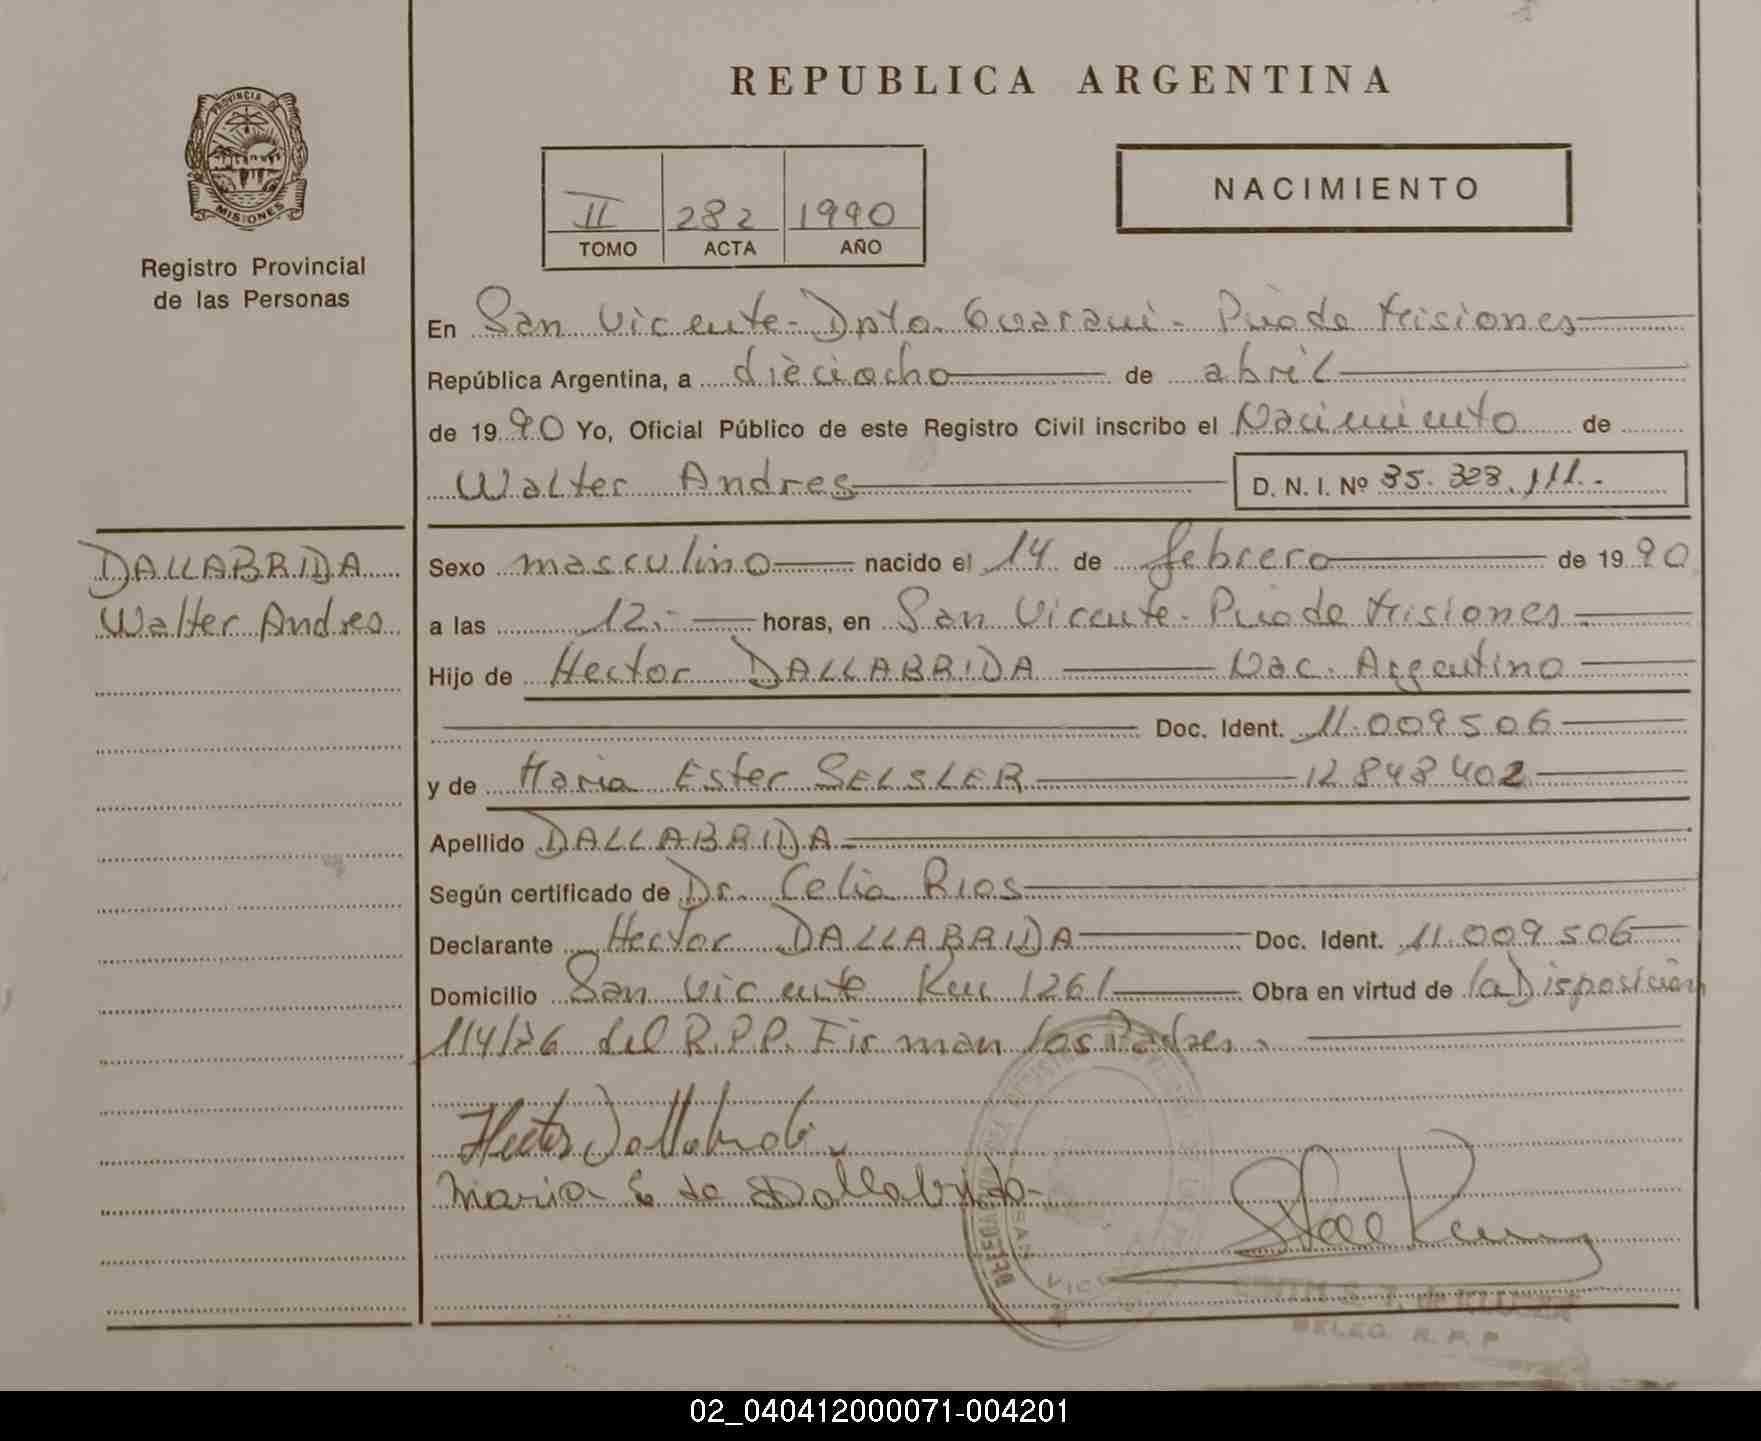 REPUBLICA ARGENTINA
PROVINCIA DE
MISIONES
Registro Provincial
de las Personas
II 282 1990
TOMO ACTA AÑO
NACIMIENTO
En San Vicente - Dpto. Guaraní - Pciode Misiones
República Argentina, a dieciocho de abril
de 1990 Yo, Oficial Público de este Registro Civil inscribo el Nacimiento de
Walter Andres D. N. I. Nº 35.323.111.-
DALLABRIDA
Walter Andres
Sexo masculino nacido el 14 de febrero de 1990
a las 12.- horas, en San Vicente - Pciode Misiones
Hijo de Hector DALLABRIDA Nac. Argentino
Doc. Ident. 11.009.506
y de Maria Ester SELSLER 12848402
Apellido DALLABRIDA
Según certificado de Dr. Celia Rios
Declarante Hector DALLABRIDA Doc. Ident. 11.009.506
Domicilio San Vicente Km 1261 Obra en virtud de la Disposición
114/76 del R.P.P. Firman los Padres.
Hector Dallabrida
Maria E de Dallabrida
SAN VICENTE
DELEG. R. P. P.
02_040412000071-004201